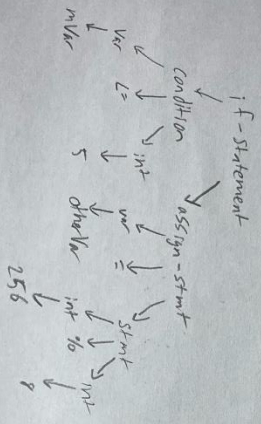 if-statement
condition assign-stmt
var <= int var = stmt
mVar 5 otherVar int % int
256 8